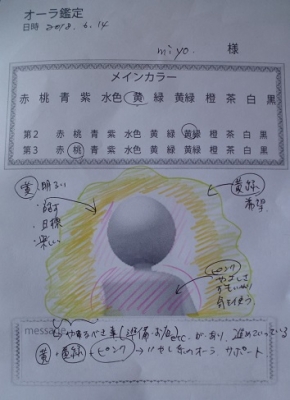 オーラ鑑定
日時 2018.6.14
miyo. 様
メインカラー
赤 桃 青 紫 水色 黄 緑 黄緑 橙 茶 白 黒
第2 赤 桃 青 紫 水色 黄 緑 黄緑 橙 茶 白 黒
第3 赤 桃 青 紫 水色 黄 緑 黄緑 橙 茶 白 黒
黄 明るい
・話す
・目標
・楽しい
黄緑
希望
ピンク
やさしさ
気を使う
message
やるべき事(準備・お店etc.があり、進めていっている
黄・黄緑・ピンク いやし系のオーラ サポート